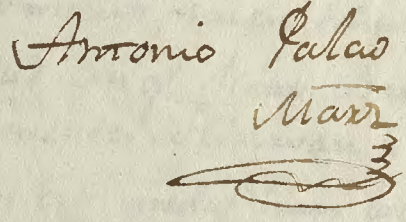 Antonio Palao
Marz